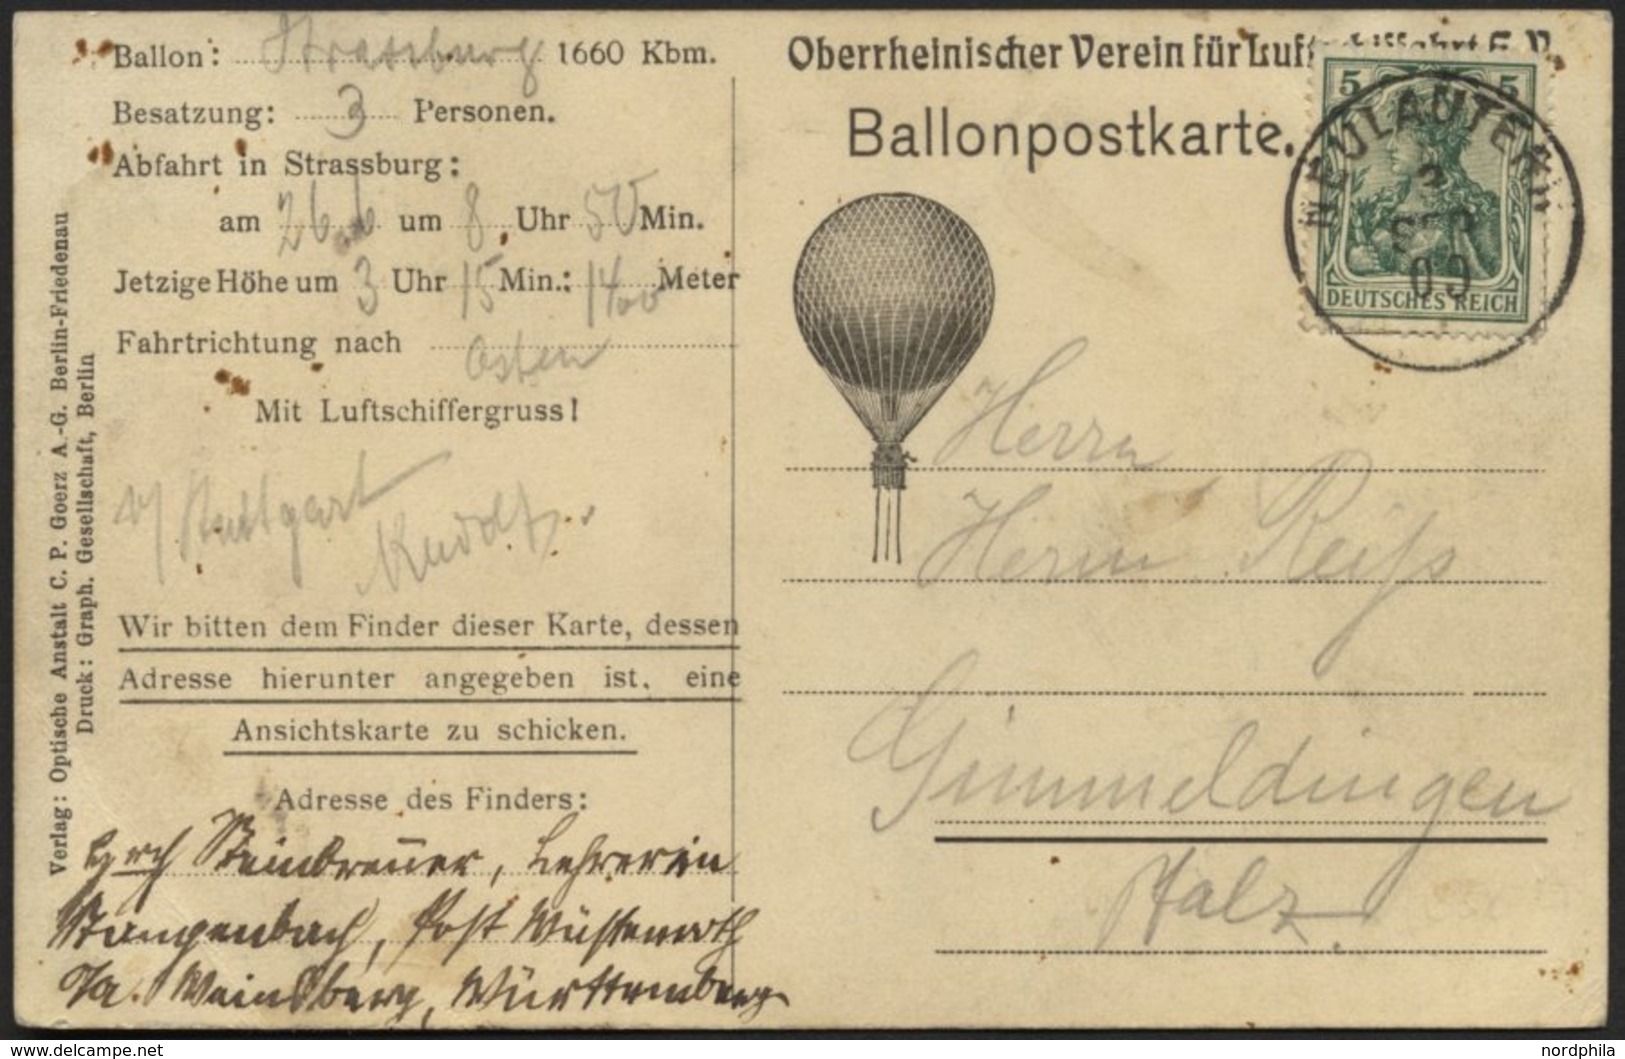 Ballon: Strassburg 1660 Kbm.
Besatzung: 3 Personen.
Abfahrt in Strassburg:
am 26.6 um 8 Uhr 50 Min.
Jetzige Höhe um 3 Uhr 15 Min.: 1400 Meter
Fahrtrichtung nach Osten
Mit Luftschiffergruss!
Stuttgart
Wir bitten dem Finder dieser Karte, dessen
Adresse hierunter angegeben ist, eine
Ansichtskarte zu schicken.
Adresse des Finders:
Steinbrenner, Lehrerin
Stangenbach, Post Wüstenroth
O/A. Weinsberg, Württemberg
Verlag: Optische Anstalt C. P. Goerz A.-G. Berlin-Friedenau
Druck: Graph. Gesellschaft, Berlin
Oberrheinischer Verein für Luftschiffahrt E.V.
Ballonpostkarte.
5 5
DEUTSCHES REICH
NEULAUTERN
2
SEP
09
Herrn
Herrn Reiß
Gimmeldingen
Pfalz.
www.delcampe.net
nordphila